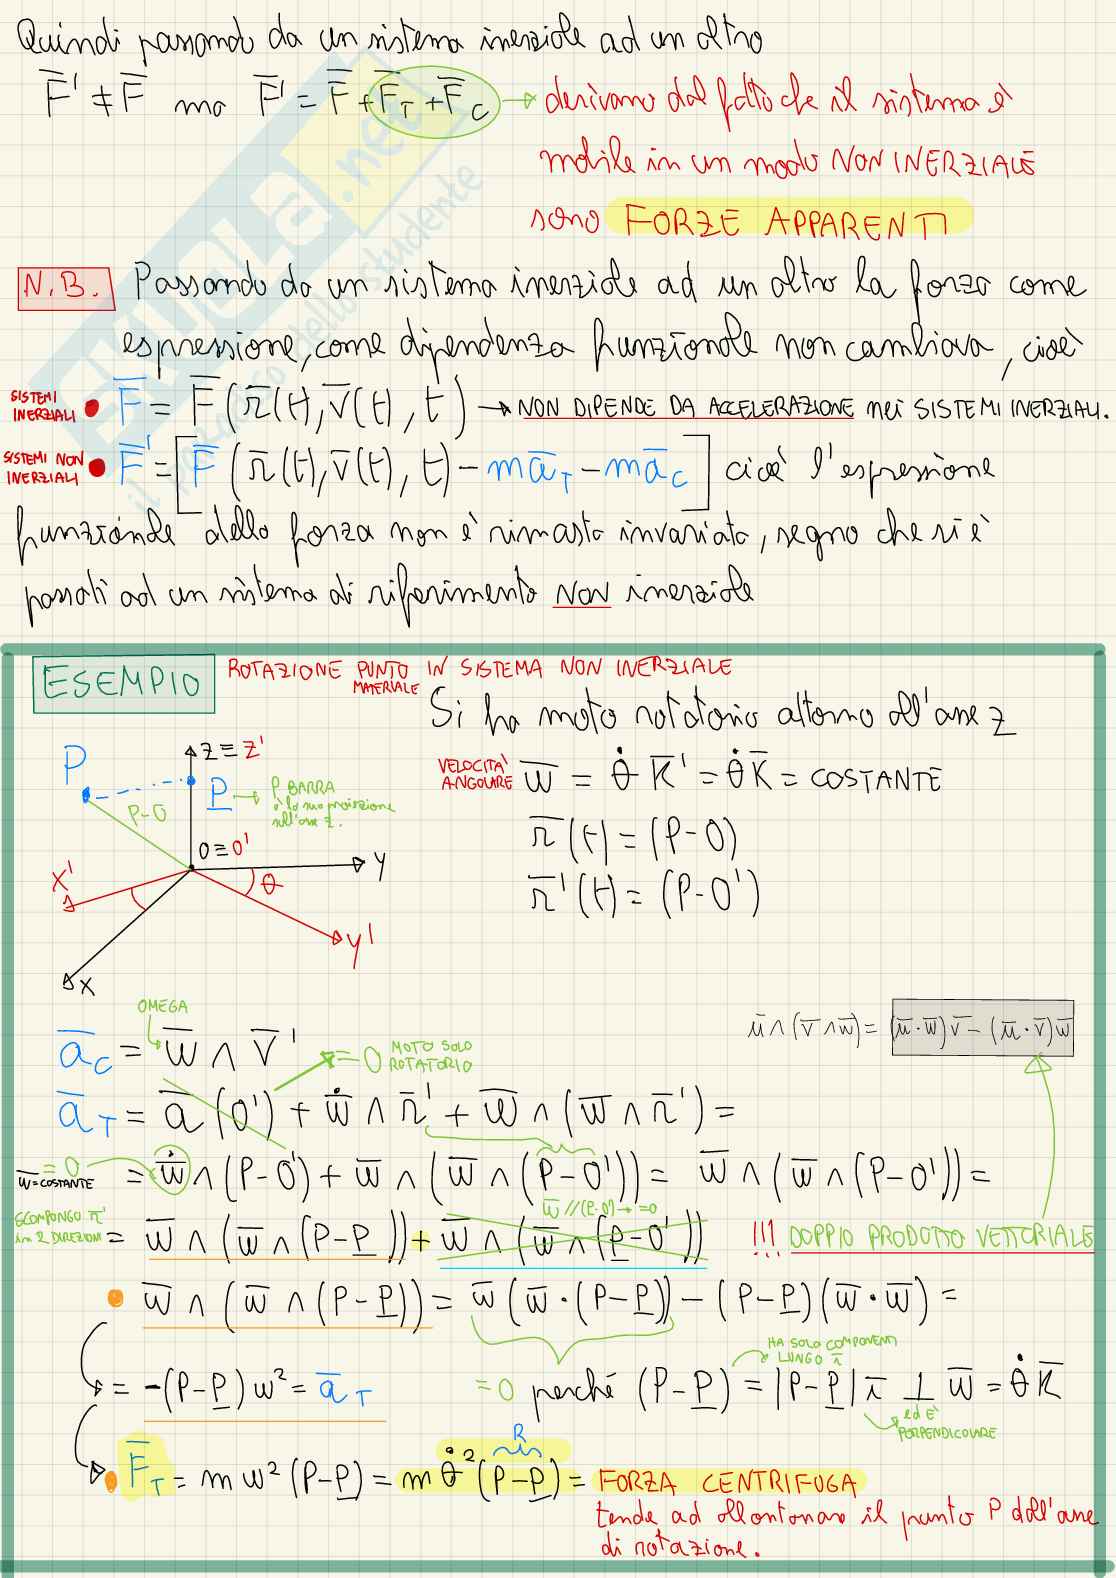 Quindi passando da un sistema inerziale ad un altro
F̅' ≠ F̅ ma F̅' = F̅ + F̅_T + F̅_C → derivano dal fatto che il sistema è
mobile in un modo NON INERZIALE
sono FORZE APPARENTI
N.B. Passando da un sistema inerziale ad un altro la forza come
espressione, come dipendenza funzionale non cambiava, cioè
SISTEMI INERZIALI • F̅' = F̅ (r̅(t), v̅(t), t) → NON DIPENDE DA ACCELERAZIONE nei SISTEMI INERZIALI.
SISTEMI NON INERZIALI • F̅' = [F̅ (r̅(t), v̅(t), t) - ma̅_T - ma̅_C] cioè l'espressione
funzionale della forza non è rimasta invariata, segno che si è
passati ad un sistema di riferimento NON inerziale
ESEMPIO ROTAZIONE PUNTO MATERIALE IN SISTEMA NON INERZIALE
Si ha moto rotatorio attorno all'asse z
P
z ≡ z'
P̲ → P BARRA
è la sua proiezione
sull'asse z.
P-O
O ≡ O'
y
x'
θ
y'
x
VELOCITÀ ANGOLARE w̅ = θ̇ K̅' = θ̇ K̅ = COSTANTE
r̅(t) = (P-O)
r̅'(t) = (P-O')
OMEGA
a̅_C = w̅ ∧ v̅'
= 0 MOTO SOLO ROTATORIO
u̅ ∧ (v̅ ∧ w̅) = (u̅ · w̅) v̅ - (u̅ · v̅) w̅
a̅_T = a̅ (O') + ẇ̅ ∧ r̅' + w̅ ∧ (w̅ ∧ r̅') =
= 0
w̅ = COSTANTE
= ẇ̅ ∧ (P-O') + w̅ ∧ (w̅ ∧ (P-O')) = w̅ ∧ (w̅ ∧ (P-O')) =
w̅ // (P-O) → = 0
SCOMPONGO r̅' in 2 DIREZIONI = w̅ ∧ (w̅ ∧ (P-P̲)) + w̅ ∧ (w̅ ∧ (P̲-O'))
!!! DOPPIO PRODOTTO VETTORIALE
• w̅ ∧ (w̅ ∧ (P-P̲)) = w̅ (w̅ · (P-P̲)) - (P-P̲)(w̅ · w̅) =
HA SOLO COMPONENTI LUNGO i̅
= -(P-P̲) w² = a̅_T
= 0 perché (P-P̲) = |P-P̲| i̅ ⊥ w̅ = θ̇ K̅
ed È PERPENDICOLARE
R
• F̅_T = m w² (P-P̲) = m θ̇² (P-P̲) = FORZA CENTRIFUGA
tende ad allontanare il punto P dall'asse
di rotazione.
SKUOLA.net
il paradiso dello studente